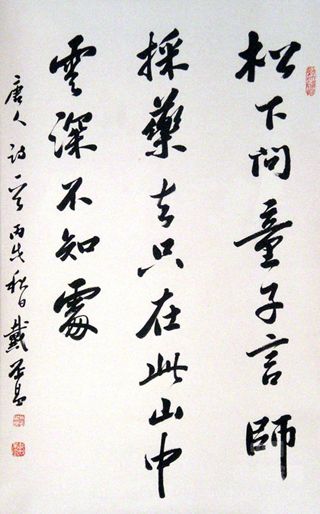 松下问童子言師
採藥去只在此山中
雲深不知處
唐人诗一首丙戌秋日戴